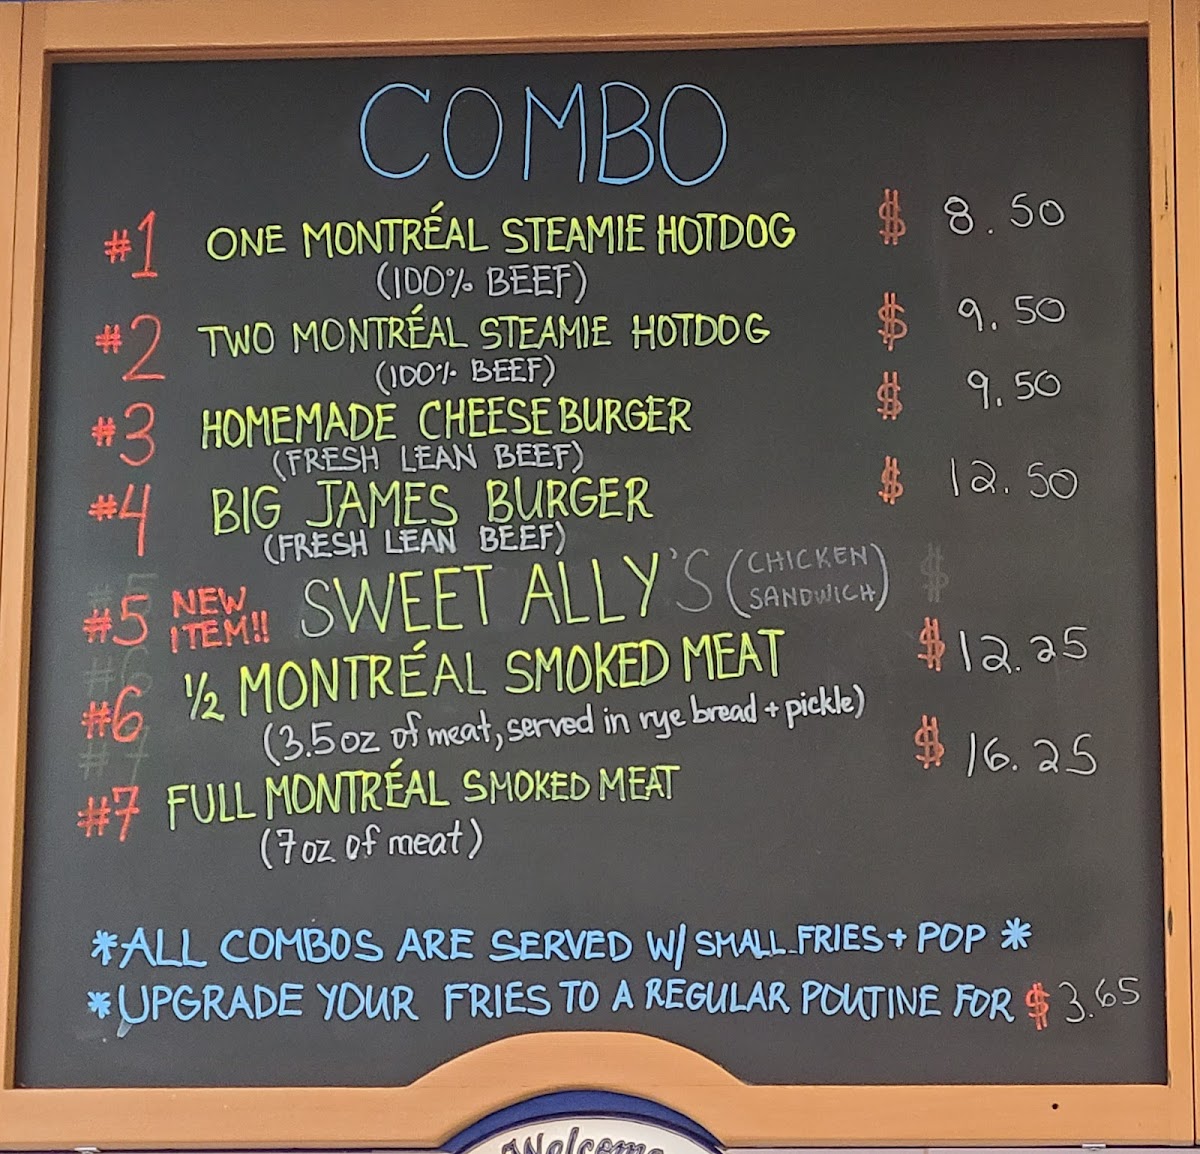 COMBO
#1 ONE MONTRÉAL STEAMIE HOTDOG $ 8.50
(100% BEEF)
#2 TWO MONTRÉAL STEAMIE HOTDOG $ 9.50
(100% BEEF)
#3 HOMEMADE CHEESEBURGER $ 9.50
(FRESH LEAN BEEF)
#4 BIG JAMES BURGER $ 12.50
(FRESH LEAN BEEF)
#5 NEW ITEM!! SWEET ALLY'S (CHICKEN SANDWICH) $
#6 1/2 MONTRÉAL SMOKED MEAT $ 12.25
(3.5oz of meat, served in rye bread + pickle)
#7 FULL MONTRÉAL SMOKED MEAT $ 16.25
(7oz of meat)
*ALL COMBOS ARE SERVED W/ SMALL FRIES + POP *
*UPGRADE YOUR FRIES TO A REGULAR POUTINE FOR $3.65
Welcome